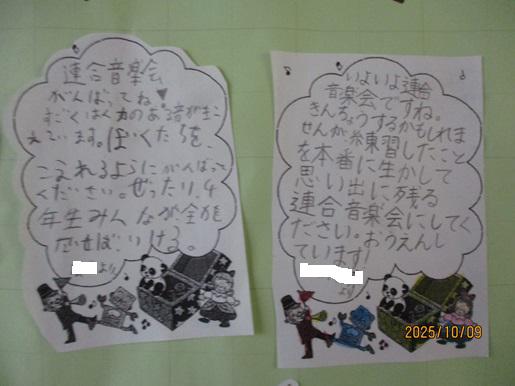 連合音楽会
がんばってね♥
すごくはく力のある音がきこ
えています。ぼくたちを、
こえれるようにがんばって
ください。ぜったい、4
年生みんなが全力を
出せばいける。
より
いよいよ連合
音楽会ですね。
きんちょうするかもしれま
せんが練習したこと
を本番に生かして
思い出に残る
連合音楽会にしてく
ださい。おうえんし
ています!
より
2025/10/09